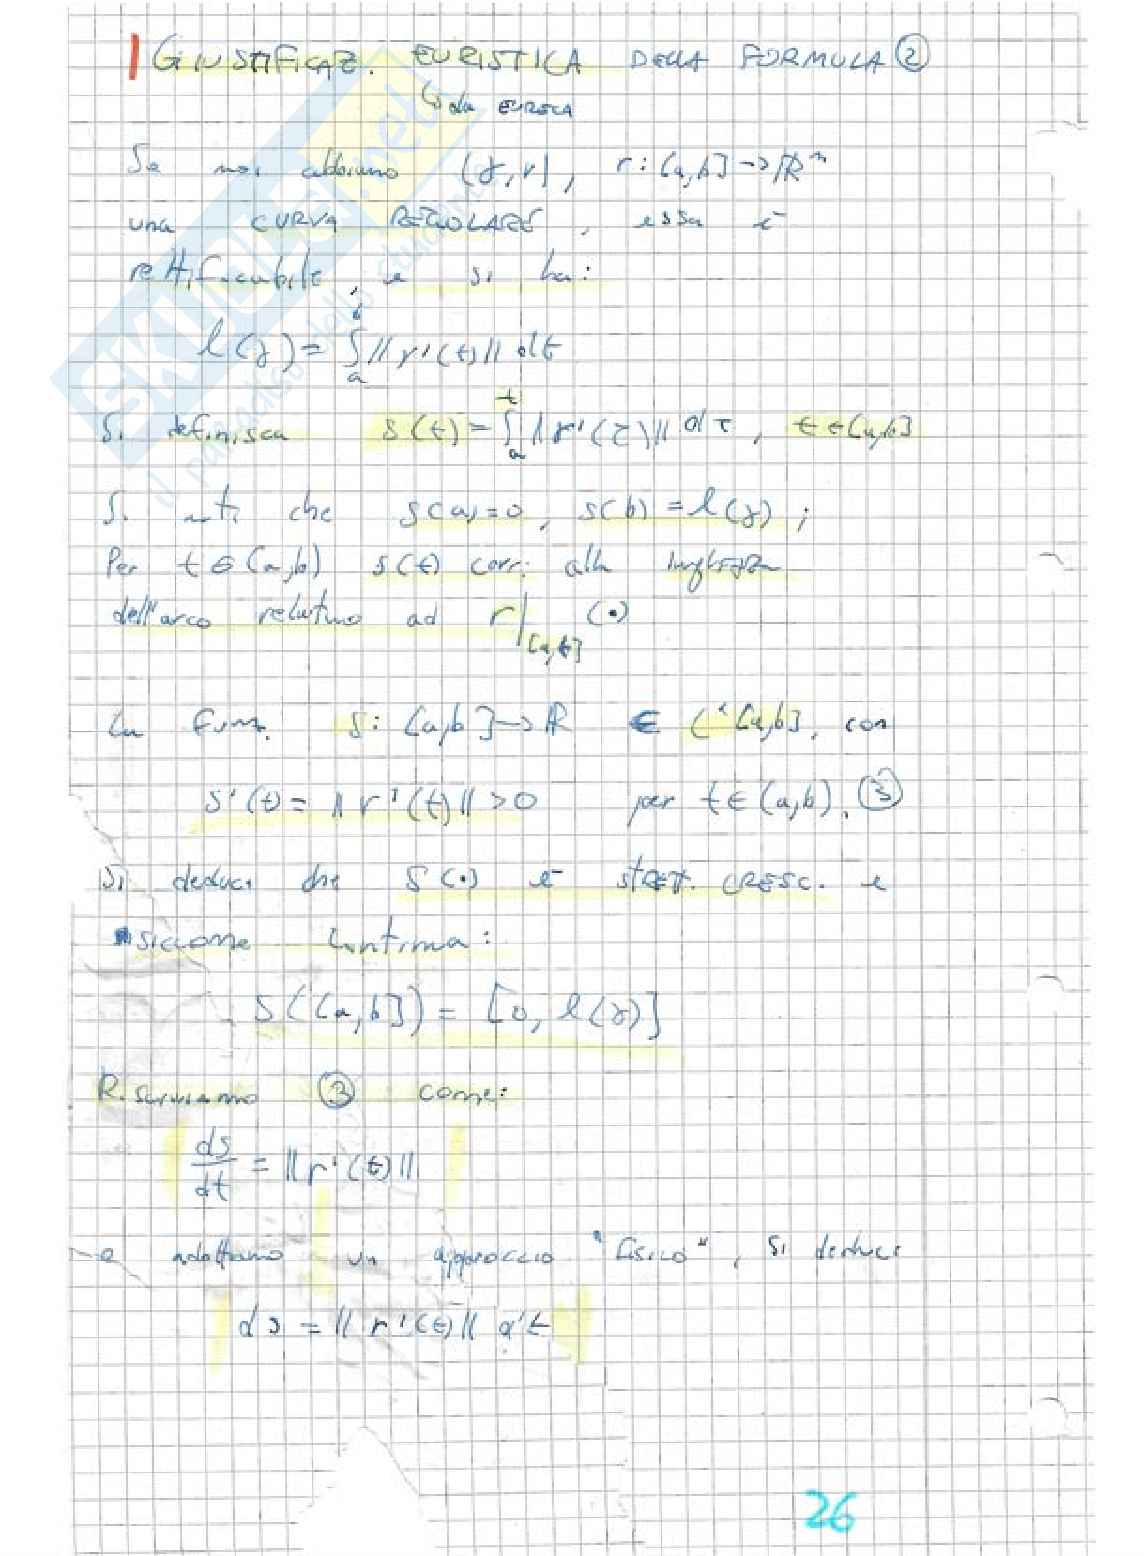 GIUSTIFICAZ. EURISTICA DELLA FORMULA ②
↳ da EURECA
Se noi abbiamo (γ, r), r: [a,b] → ℝⁿ
una CURVA REGOLARE, essa è
rettificabile, e si ha:
l(γ) = ∫ₐᵇ ||r'(t)|| dt
Si definisca s(t) = ∫ₐᵗ ||r'(τ)|| dτ, t∈[a,b]
Si noti che s(a)=0, s(b) = l(γ);
Per t∈(a,b) s(t) corr. alla lunghezza
dell'arco relativo ad r|[a,t] (·)
La funz. s: [a,b] → ℝ ∈ C¹[a,b], con
s'(t) = ||r'(t)|| >0 per t∈(a,b). ③
Si deduce che s(·) è STRETT. CRESC. e
siccome continua:
s([a,b]) = [0, l(γ)]
Riscriviamo ③ come:
ds/dt = ||r'(t)||
adottiamo un approccio "fisico", si deduce
ds = ||r'(t)|| dt
26
SKUOLA.net
il paradiso dello studente